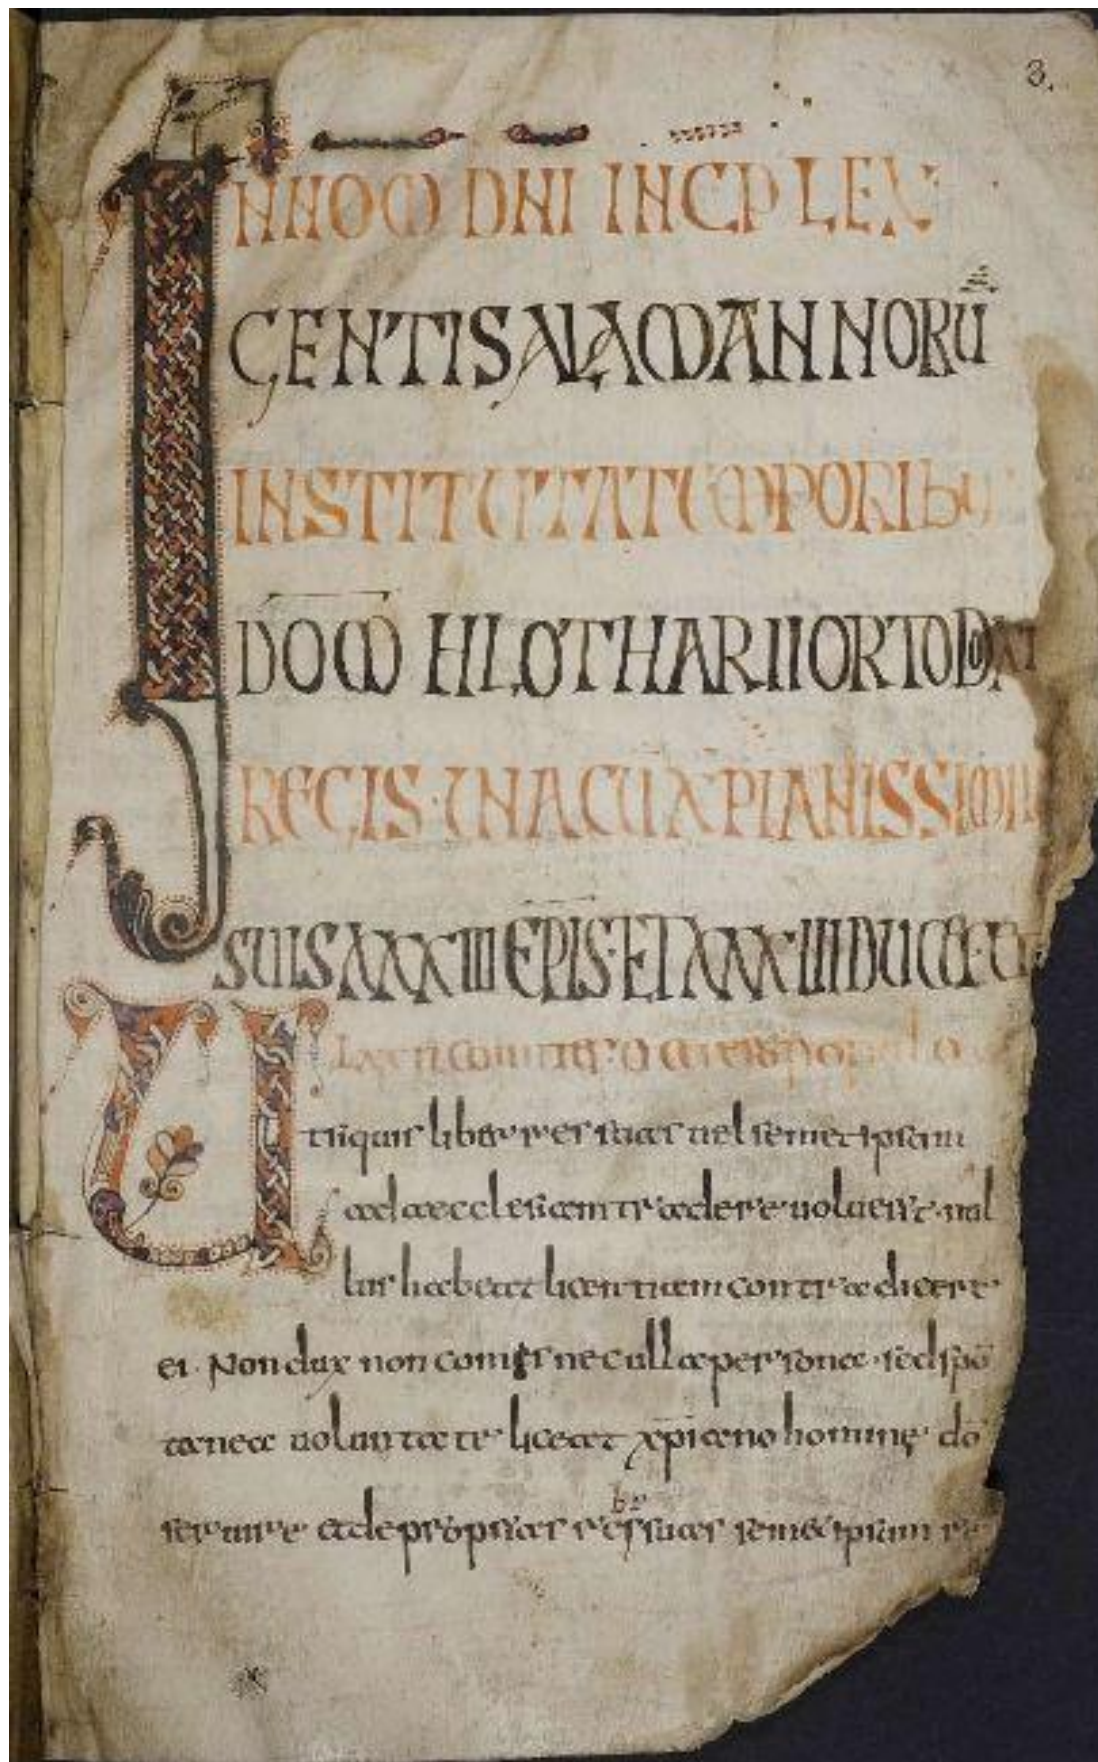 3.
IN NOM DNI INCP LEX
GENTIS ALAMANNORU
INSTITUTA TEMPORIBU
DOM HLOTHARII ORTODOXI
REGIS UNA CU XPIANISSIMIS
SUIS XXXIII EPIS ET XXXIIII DUCIB
Ut si quis liber res suas vel semet ipsam
ad aecclesiam tradere voluerit nul
lus habeat licentiam contradicere
ei. Non dux non comis nec ulla persona sed spō
tanea voluntate liceat xpiano homine dō
servire et de proprias res suas semet ipsum re